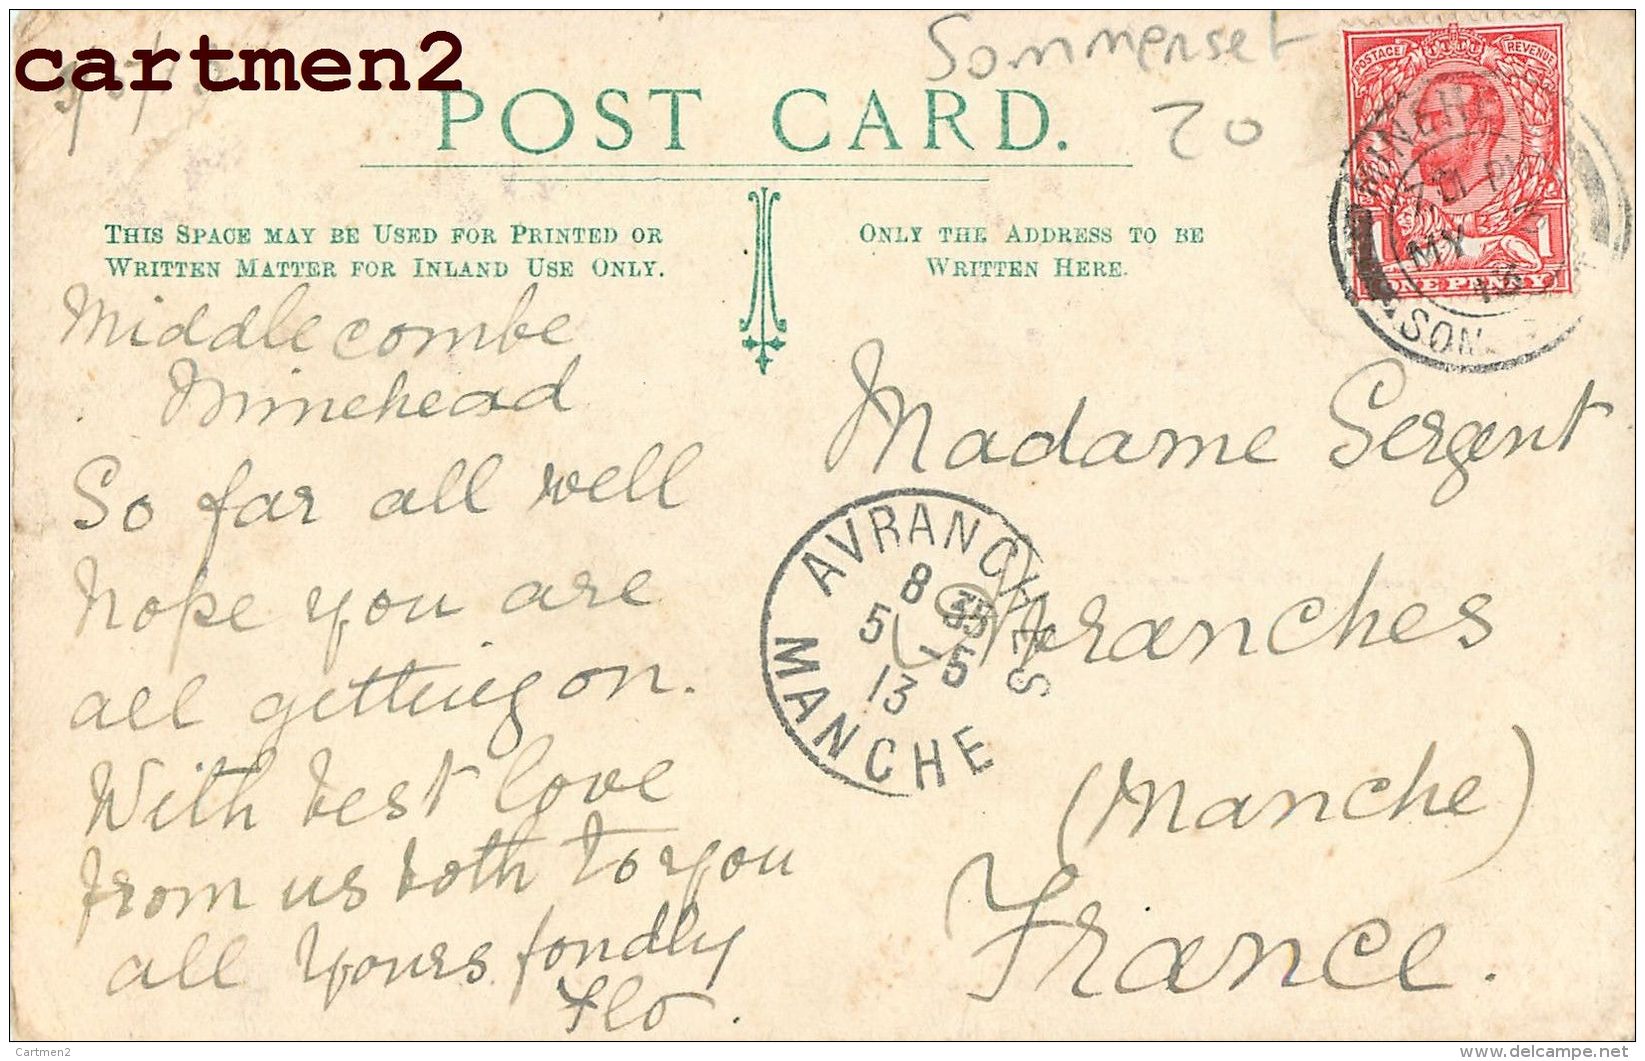 cartmen2
Sommerset
POST CARD.
20
POSTAGE REVENUE
MINEH
MY
13
SON
1 1
ONE PENNY
THIS SPACE MAY BE USED FOR PRINTED OR
WRITTEN MATTER FOR INLAND USE ONLY.
ONLY THE ADDRESS TO BE
WRITTEN HERE.
Middlecombe
Minehead
So far all well
hope you are
all getting on.
With best love
from us both to you
all yours fondly
Flo.
Madame Sergent
Avranches
(Manche)
France.
AVRANCHES
8 35
5 - 5
13
MANCHE
Cartmen2
www.delcampe.net